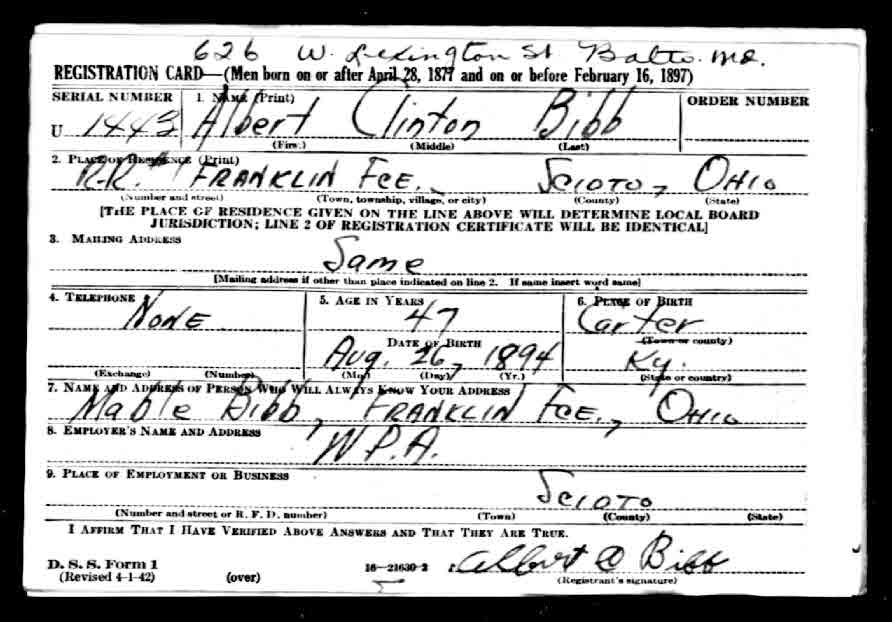 626 W. Lexington St Balto. Md.
REGISTRATION CARD—(Men born on or after April 28, 1877 and on or before February 16, 1897)
SERIAL NUMBER 1. NAME (Print) ORDER NUMBER
U 1443 Albert Clinton Bibb
(First) (Middle) (Last)
2. PLACE OF RESIDENCE (Print)
R.R. FRANKLIN FCE., SCIOTO, OHIO
(Number and street) (Town, township, village, or city) (County) (State)
[THE PLACE OF RESIDENCE GIVEN ON THE LINE ABOVE WILL DETERMINE LOCAL BOARD
JURISDICTION; LINE 2 OF REGISTRATION CERTIFICATE WILL BE IDENTICAL]
3. MAILING ADDRESS
Same
[Mailing address if other than place indicated on line 2. If same insert word same]
4. TELEPHONE 5. AGE IN YEARS 6. PLACE OF BIRTH
NONE 47 Carter
DATE OF BIRTH (Town or county)
Aug. 26, 1894 Ky.
(Exchange) (Number) (Mo.) (Day) (Yr.) (State or country)
7. NAME AND ADDRESS OF PERSON WHO WILL ALWAYS KNOW YOUR ADDRESS
Mable Bibb, FRANKLIN FCE., OHIO
8. EMPLOYER'S NAME AND ADDRESS
W.P.A.
9. PLACE OF EMPLOYMENT OR BUSINESS
SCIOTO
(Number and street or R. F. D. number) (Town) (County) (State)
I AFFIRM THAT I HAVE VERIFIED ABOVE ANSWERS AND THAT THEY ARE TRUE.
D. S. S. Form 1
(Revised 4-1-42) (over) 16—21630-2 Albert C Bibb
(Registrant's signature)